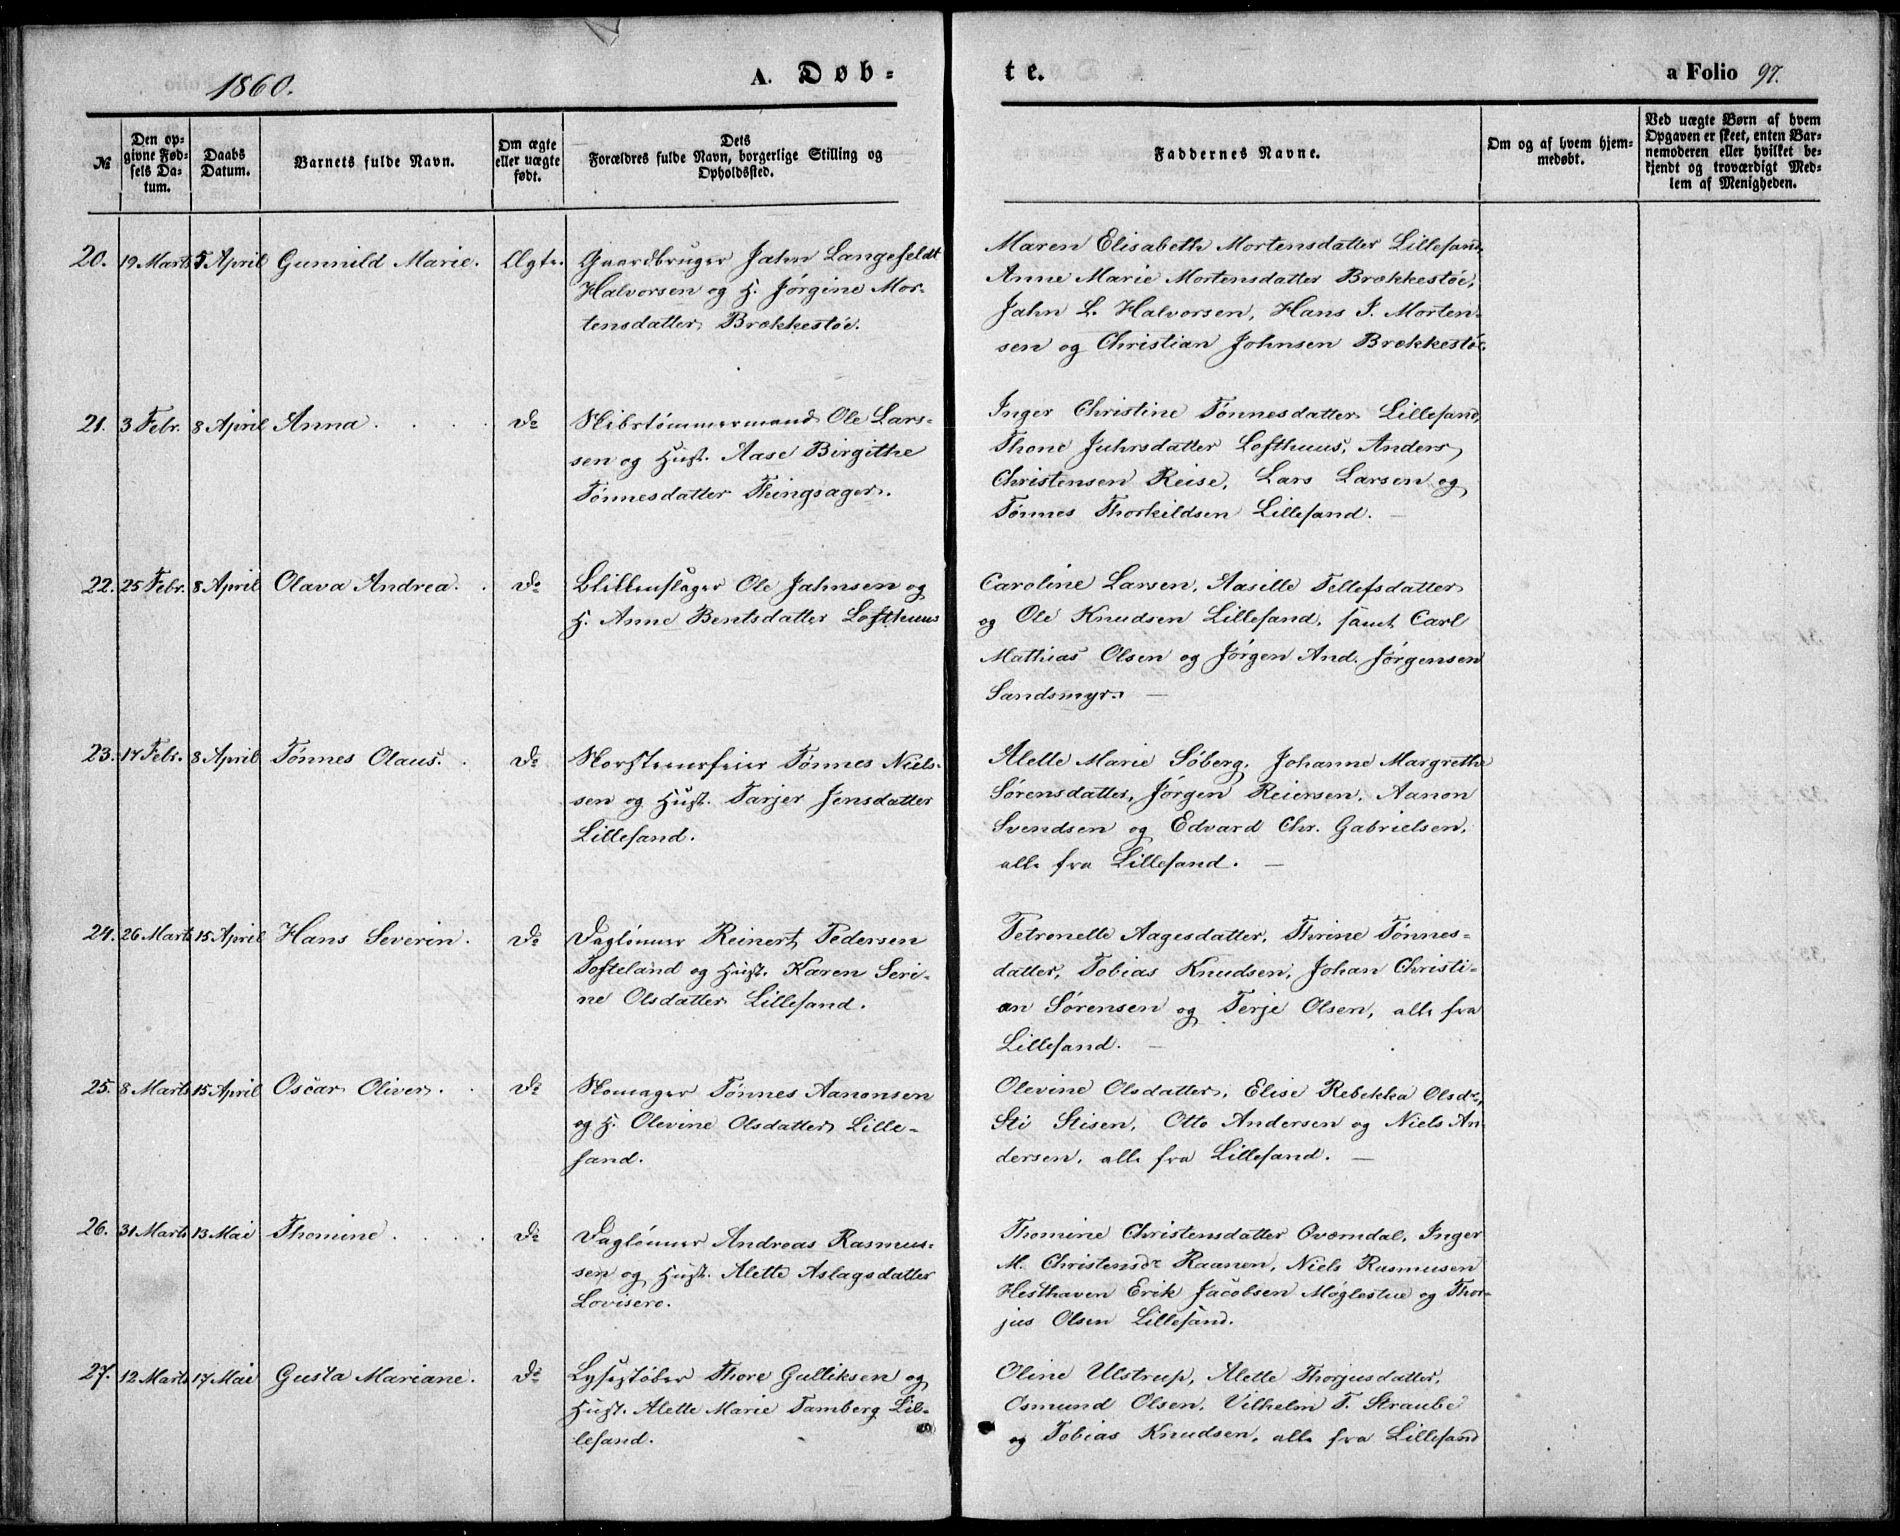 1860.
A. Døb-
te.
a Folio 97.
№
Den op-
givne Fød-
sels Da-
tum.
Daabs
Datum.
Barnets fulde Navn.
Om ægte
eller uægte
født.
Dets
Forældres fulde Navn, borgerlige Stilling og
Opholdssted.
Faddernes Navne.
Om og af hvem hjem-
medøbt.
Ved uægte Børn af hvem
Opgaven er skeet, enten Bar-
nemoderen eller hvilket be-
kjendt og troværdigt Med-
lem af Menigheden.
20. 19 Marts 5 April Gunnild Marie. Ægte. Gaardbruger Jahn Langefeldt
Halvorsen og H. Jørgine Mor-
tensdatter Brækkestøe.
Maren Elisabeth Mortensdatter Lillesand,
Anne Marie Mortensdatter Brækkestøe,
Jahn L. Halvorsen, Hans J. Morten-
sen og Christian Johnsen Brækkestøe.
21. 3 Febr. 8 April Anna. Do Skibstømmermand Ole Lars-
sen og Hust. Aase Birgithe
Tønnesdatter Thingsager.
Inger Christine Tønnesdatter Lillesand,
Thone Juhrsdatter Lofthuus, Anders
Christensen Reise, Lars Larsen og
Tønnes Thorkildsen Lillesand.
22. 25 Febr. 8 April Olava Andrea. Do Blikkenslager Ole Jahnsen og
H. Anne Bentsdatter Lofthuus
Caroline Larsen, Aasille Tellefsdatter
og Ole Knudsen Lillesand, samt Carl
Mathias Olsen og Jørgen And. Jørgensen
Sandsmyr.
23. 17 Febr. 8 April Tønnes Olaus. Do Skorsteensfeier Tønnes Niels-
sen og Hust. Tarjer Jensdatter
Lillesand.
Alelle Marie Søberg, Johanne Margrethe
Sørensdatter, Jørgen Reiersen, Aanon
Svendsen og Edvard Chr. Gabrielsen,
alle fra Lillesand.
24. 26 Marts 15 April Hans Severin. Do Daglønner Reinert Pedersen
Tofteland og Hust. Karen Seri-
ne Olsdatter Lillesand.
Petronelle Aagesdatter, Thrine Tønnes-
datter, Tobias Knudsen, Johan Christi-
an Sørensen og Terje Olsen, alle fra
Lillesand.
25. 8 Marts 15 April Oscar Oliver. Do Skomager Tønnes Aanonsen
og H. Olevine Olsdatter Lille-
sand.
Olevine Olsdatter, Elise Rebekka Olsdr,
Sti Stisen, Otto Andersen og Niels An-
dersen, alle fra Lillesand.
26. 31 Marts 13 Mai Thomine. Do Daglønner Andreas Rasmus-
sen og Hust. Alette Aslagsdatter
Lovisero.
Thomine Christensdatter Ovæmdal, Inger
M. Christensdr Raanen, Niels Rasmusen
Hesthaven Erik Jacobsen Møglestue og Thor-
jus Olsen Lillesand.
27. 12 Marts 17 Mai Gusta Mariane. Do Lysestøber Thore Gulliksen og
Hust. Alette Marie Tamberg Lil-
lesand.
Oline Ulstrup, Alette Thorjusdatter,
Osmund Olsen, Vilhelm T. Straube
og Tobias Knudsen, alle fra Lillesand